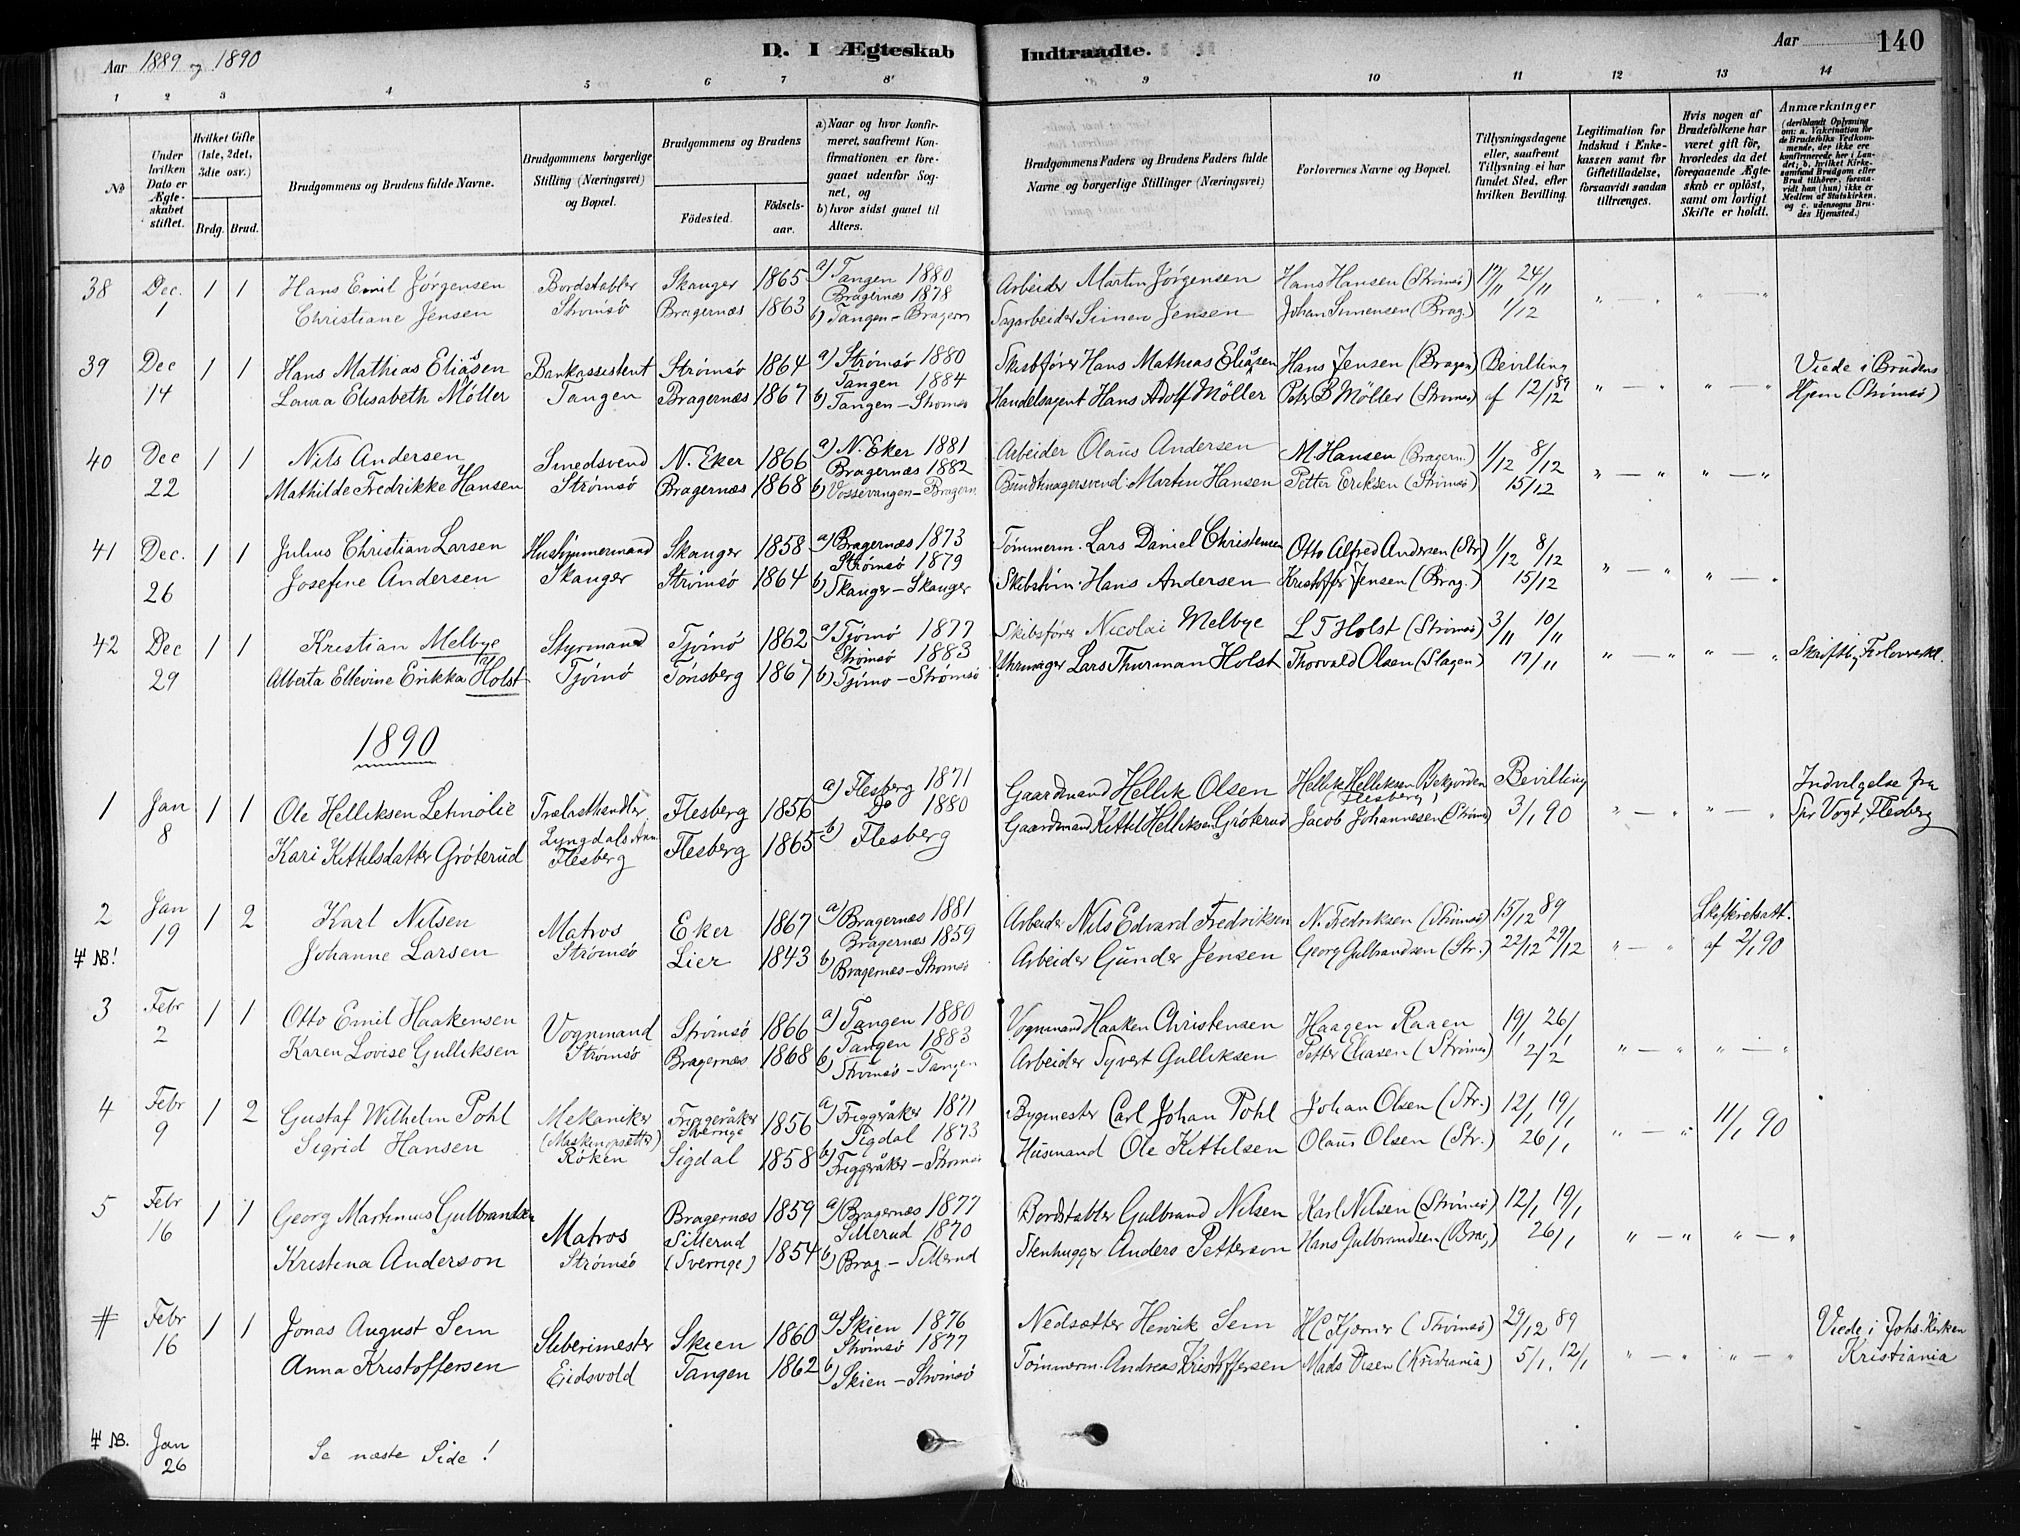 Aar 1889 og 1890
D. I Ægteskab Indtraadte.
Aar 140
1 2 3 4 5 6 7 8 9 10 11 12 13 14
No
Under hvilken Dato er Ægteskabet stiftet.
Hvilket Gifte (1ste, 2det, 3die osv.)
Brdg. Brud.
Brudgommens og Brudens fulde Navne.
Brudgommens borgerlige Stilling (Næringsvei) og Bopæl.
Brudgommens og Brudens
Fødested. Fødselsaar.
a) Naar og hvor konfirmeret, saafremt Konfirmationen er foregaaet udenfor Sognet, og
b) hvor sidst gaaet til Alters.
Brudgommens Faders og Brudens Faders fulde Navne og borgerlige Stillinger (Næringsvei)
Forlovernes Navne og Bopæl.
Tillysningsdagene eller, saafremt Tillysning ei har fundet Sted, efter hvilken Bevilling.
Legitimation for Indskud i Enkekassen samt for Giftetilladelse, forsaavidt saadan tiltrænges.
Hvis nogen af Brudefolkene har været gift før, hvorledes da det foregaaende Ægteskab er opløst, samt om lovligt Skifte er holdt.
Anmærkninger (deriblandt Oplysning om: a. Vakcination for de Brudefolks Vedkommende, der ikke ere konfirmerede her i Landet; b. hvilket Kirkesamfund Brudgom eller Brud tilhører, forsaavidt han (hun) ikke er Medlem af Statskirken, og c. udensogns Brudes Hjemsted.)
38 Dec. 1 1 1 Hans Emil Jørgensen Bordstabler Skauger 1865 a) Tangen 1880 Arbeider Martin Jørgensen Hans Hansen (Strømsø) 17/11 24/11
Christiane Jensen Strømsø Bragernæs 1863 Bragernæs 1878 b) Tangen - Bragern Sagarbeider Simen Jensen Johan Simensen (Brag.) 1/12 " — " " — "
39 Dec 14 1 1 Hans Mathias Eliasen Bankassistent Strømsø 1864 a) Strømsø 1880 Skibsfører Hans Mathias Eliasen Hans Jensen (Bragen) Bevilling Viede i Brudens
Laura Elisabeth Möller Tangen Bragernæs 1867 Tangen 1884 b) Tangen - Strømsø Handelsagent Hans Adolf Möller Petr B Möller (Strømsø) af 12/12 89 " — " " — " Hjem (Strømsø)
40 Dec 22 1 1 Nils Andersen Smedsvend N. Eker 1866 a) N. Eker 1881 Arbeider Olaus Andersen M. Hansen (Bragern.) 1/12 8/12
Mathilde Fredrikke Hansen Strømsø Bragernæs 1868 Bragernæs 1882 b) Vossevangen - Bragern Bundtmagersvend Martin Hansen Petter Eriksen (Strømsø) 15/12 " — " " — "
41 Dec. 26 1 1 Julius Christian Larsen Hustømmermand Skauger 1858 a) Bragernæs 1873 Tømmerm. Lars Daniel Christensen Otto Alfred Andersen (Str) 1/12 8/12
Josefine Andersen Skauger Strømsø 1864 Strømsø 1879 b) Skauger - Skauger Skibstøm. Hans Andersen Kristoffer Jensen (Brag.) 15/12 " — " " — "
42 Dec 29 1 1 Kristian Melbye Styrmand Tjømø 1862 a) Tjømø 1877 Skibsfører Nicolai Melbye L T Holst (Strømsø) 3/11 10/11
Alberta Ellevine Erikka Holst Tjømø Tønsberg 1867 Strømsø 1883 b) Tjømø - Strømsø Uhrmager Lars Thurman Holst Thorvald Olsen (Slagen) 17/11 " — " " — " Skriftlig Forloverekl.
1890
1 Jan 8 1 1 Ole Helliksen Letmolie Trælasthandler Flesberg 1856 a) Flesberg 1871 Gaardmand Hellik Olsen Hellik Helliksen Bekjorden (Flesberg) Bevilling Indvilgelse fra
Kari Kittilsdatter Gröterud Lyngdals Ann. Flesberg Flesberg 1865 Do 1880 b) Flesberg Gaardmand Kittil Helliksen Gröterud Jacob Johannesen (Strømsø) 3/1 90 " — " " — " Spr Vogt, Flesberg
2 Jan 19 1 2 Karl Nilsen Matros Eker 1867 a) Bragernæs 1881 Arbeider Nils Edvard Fredriksen N. Fredriksen (Strømsø) 15/12 89 Skifteretsatt.
NB! Johanne Larsen Strømsø Lier 1843 Bragernæs 1859 b) Bragernæs - Strømsø Arbeider Gunder Jensen Georg Gulbrandsen (Str.) 22/12 29/12 " — " af 2/1 90
3 Febr 2 1 1 Otto Emil Haakensen Vognmand Strømsø 1866 a) Tangen 1880 Vognmand Haaken Christensen Haagen Raaen 19/1 26/1
Karen Lovise Gulliksen Strømsø Bragernæs 1868 Tangen 1883 b) Strømsø - Tangen Arbeider Syvert Gulliksen Petter Eliasen (Strømsø) 2/2 " — " " — "
4 Febr 9 1 2 Gustaf Wilhelm Pohl Mekaniker Friggeråker Sverrige 1856 a) Friggeråker 1871 Bygmester Carl Johan Pohl Johan Olsen (Str.) 12/1 19/1
Sigrid Hansen (Maskinopsætter) Röken Sigdal 1858 Sigdal 1873 b) Friggeråker - Strømsø Husmand Ole Kittilsen Olaus Olsen (Str.) 26/1 " — " 11/1 90
5 Febr 16 1 1 Georg Martinius Gulbrandsen Matros Bragernæs 1859 a) Bragernæs 1877 Bordstabler Gulbrand Nilsen Karl Nilsen (Strømsø) 12/1 19/1
Kristina Anderson Strømsø Sillerud (Sverrige) 1854 Sillerud 1870 b) Brag - Sillerud Stenhugger Anders Petterson Hans Gulbrandsen (Brag) 26/1 " — " " — "
# Febr 16 1 1 Jonas August Sem Sliberimester Skien 1860 a) Skien 1876 Nedsætter Henrik Sem H C Kjærner (Strømsø) 29/12 89 Viede i Johs. Kirken
Anna Kristoffersen Eidsvold Tangen 1862 Strømsø 1877 b) Skien - Strømsø Tømmerm. Andreas Kristoffersen Mads Olsen (Kristiania) 5/1, 12/1 " — " " — " Kristiania
NB. Jan 26 Se næste Side!